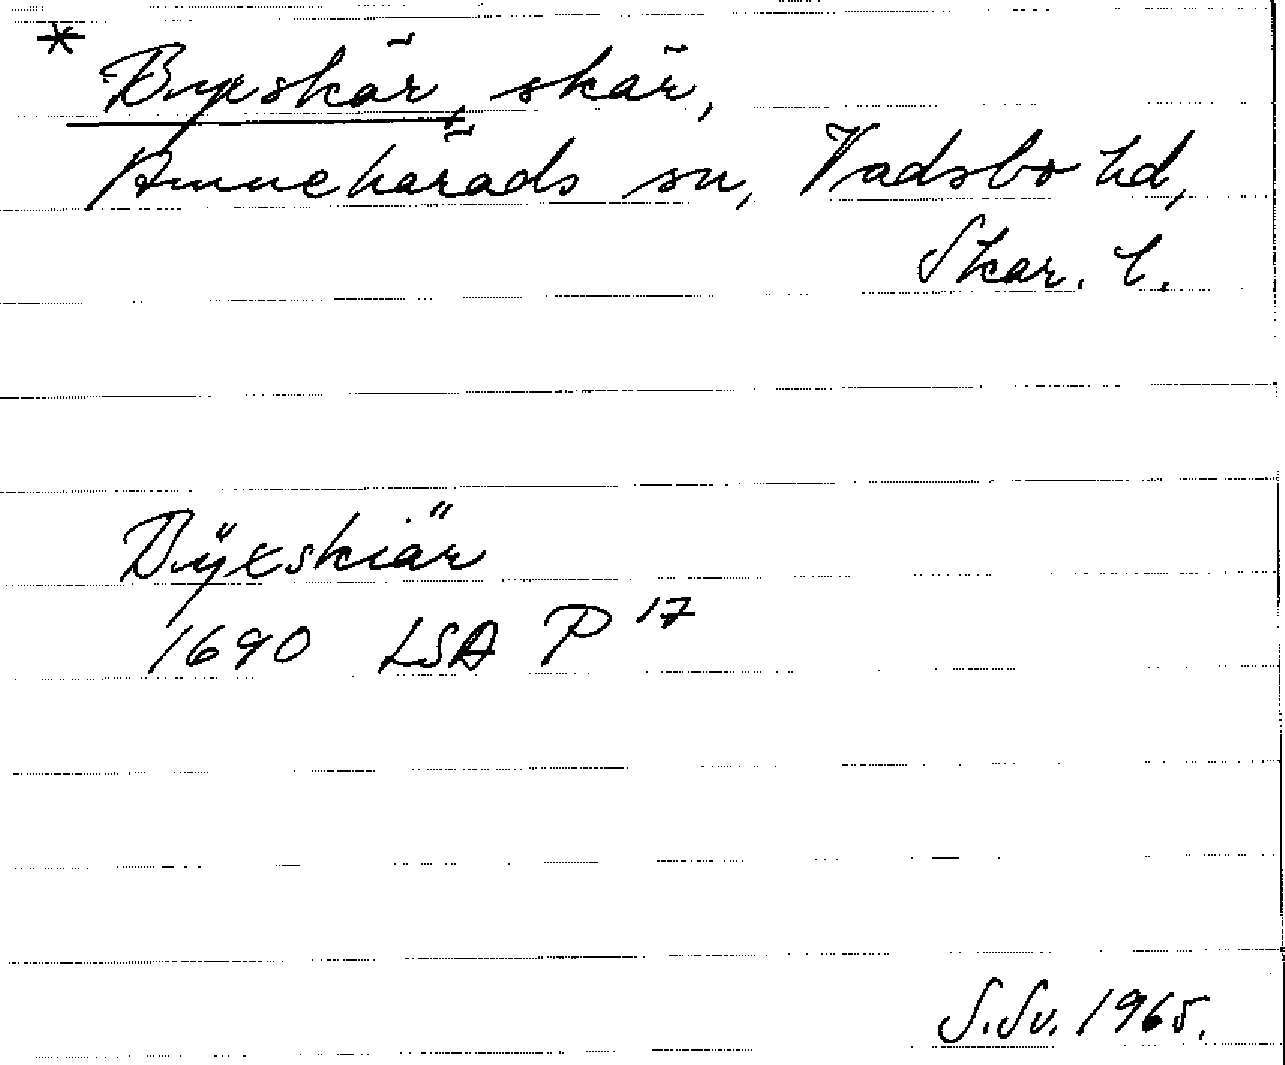 * Byxskär, skär,
Amnehärads sn, Vadsbo hd,
Skar. l.
Bÿxskiär
1690 LSA P 17
S.Sv. 1965.